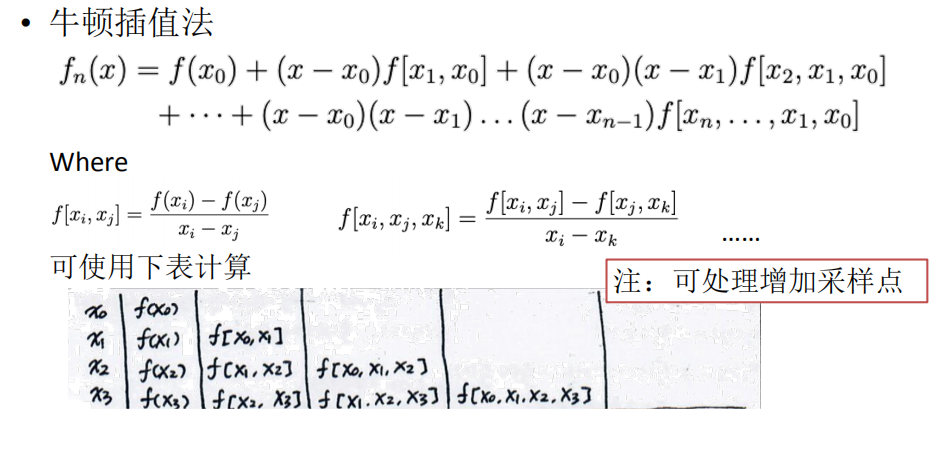 • 牛顿插值法
fₙ(x) = f(x₀) + (x − x₀)f[x₁, x₀] + (x − x₀)(x − x₁)f[x₂, x₁, x₀]
+ ⋯ + (x − x₀)(x − x₁) … (x − xₙ₋₁)f[xₙ, … , x₁, x₀]
Where
f[xᵢ, xⱼ] = (f(xᵢ) − f(xⱼ)) / (xᵢ − xⱼ) f[xᵢ, xⱼ, xₖ] = (f[xᵢ, xⱼ] − f[xⱼ, xₖ]) / (xᵢ − xₖ) ……
可使用下表计算
注：可处理增加采样点
x₀ f(x₀)
x₁ f(x₁) f[x₀, x₁]
x₂ f(x₂) f[x₁, x₂] f[x₀, x₁, x₂]
x₃ f(x₃) f[x₂, x₃] f[x₁, x₂, x₃] f[x₀, x₁, x₂, x₃]